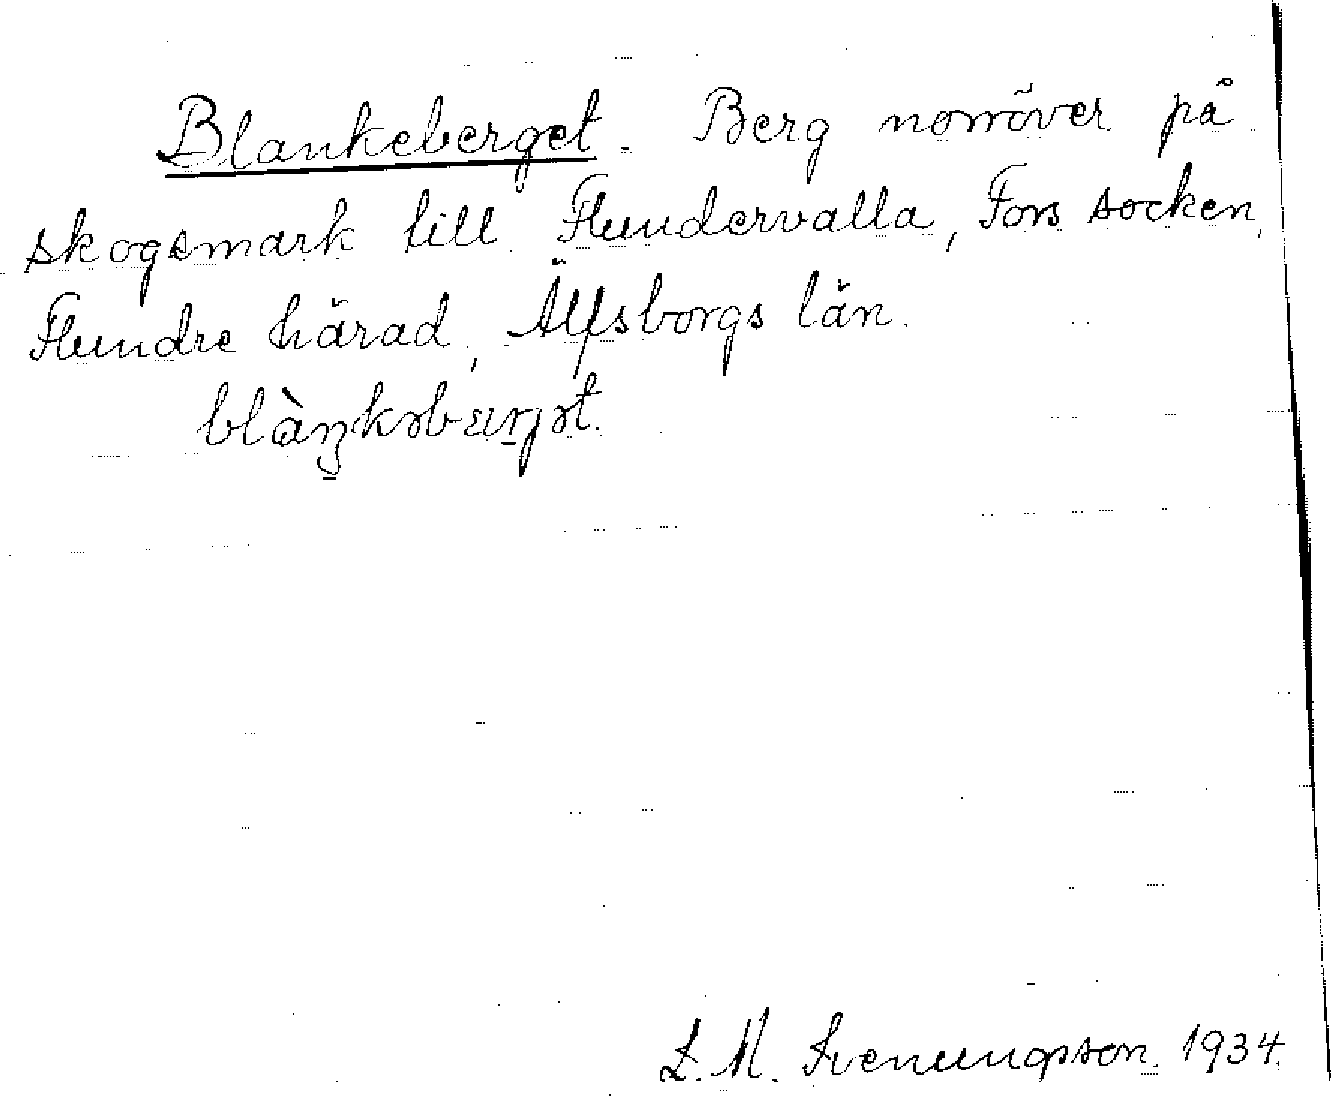 Blankeberget. Berg norröver på
skogsmark till Flundervalla, Fors socken,
Flundre härad, Älfsborgs län.
blàŋkəbærjət.
L. M. Svenungsson. 1934.